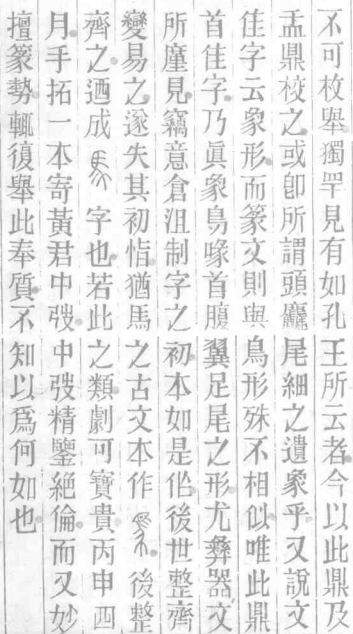 不可枚舉獨罕見有如孔王所云者今以此鼎及
盂鼎校之或卽所謂頭麤尾細之遺象乎又說文
隹字云象形而篆文則與鳥形殊不相似唯此鼎
首隹字乃眞象鳥喙首腹翼足尾之形尤彝器文
所廑見竊意倉沮制字之初本如是佗後世整齊
變易之遂失其初恉猶馬之古文本作後整
齊之迺成字也若此之類劇可寶貴丙申四
月手拓一本寄黃君中弢中弢精鑒絕倫而又妙
擅篆勢輒復舉此奉質不知以爲何如也